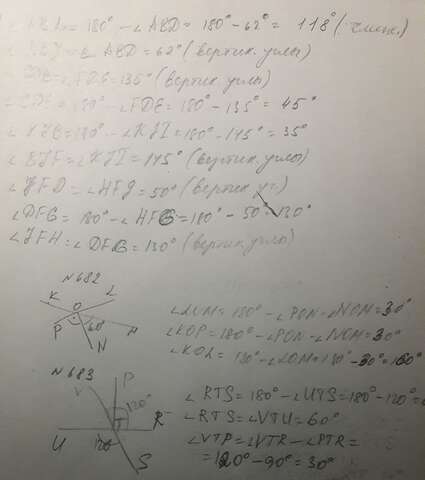 = 180° - ∠ABD = 180° - 62° = 118° (смеж.)
∠ ABD = 62° (вертик. углы)
= 135° (вертик. углы)
∠CDE = 180° - ∠FDE = 180° - 135° = 45°
= 180° - ∠KJI = 180° - 145° = 35°
∠EJF = ∠KJI = 145° (вертик. углы)
∠JFD = ∠HFG = 50° (вертик. уг.)
∠DFG = 180° - ∠HFG = 180° - 50° = 130°
∠JFH = ∠DFG = 130° (вертик. углы)
N 682
K O L
P 60° M
N
∠LOM = 180° - ∠PON - ∠NOM = 30°
∠KOP = 180° - ∠PON - ∠NOM = 30°
∠KOL = 180° - ∠LOM = 180° - 30° =
N 683
P
V 120°
T R
U 120°
S
∠RTS = 180° - ∠UTS = 180° - 120° =
∠RTS = ∠VTU = 60°
∠VTP = ∠VTR - ∠PTR =
= 120° - 90° = 30°